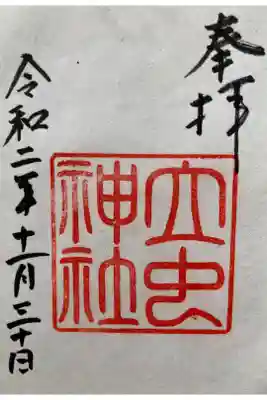 奉拝
立虫
神社
令和二年十一月三十日